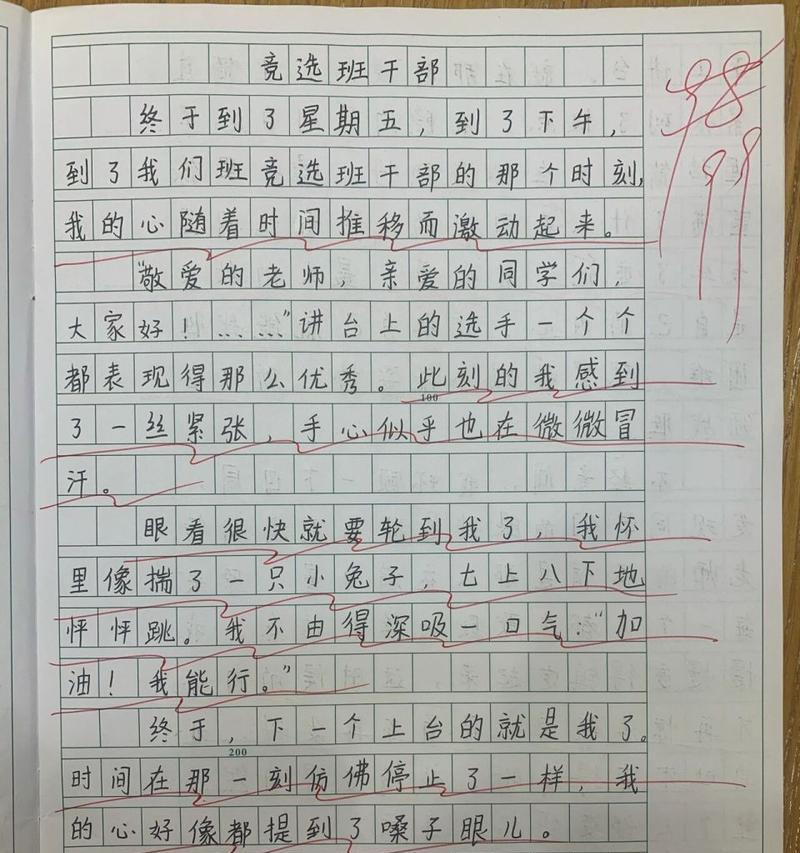 竞选班干部
终于到了星期五，到了下午，
到了我们班竞选班干部的那个时刻，
我的心随着时间推移而激动起来。
“敬爱的老师，亲爱的同学们，
大家好！……”讲台上的选手一个个
都表现得那么优秀。此刻的我感到
100
了一丝紧张，手心似乎也在微微冒
汗。
眼看很快就要轮到我了，我怀
里像揣了一只小兔子，七上八下地
怦怦跳。我不由得深吸一口气：“加
油！我能行。”
终于，下一个上台的就是我了。
200
时间在那一刻仿佛停止了一样，我
的心好像都提到了嗓子眼儿。
98
99